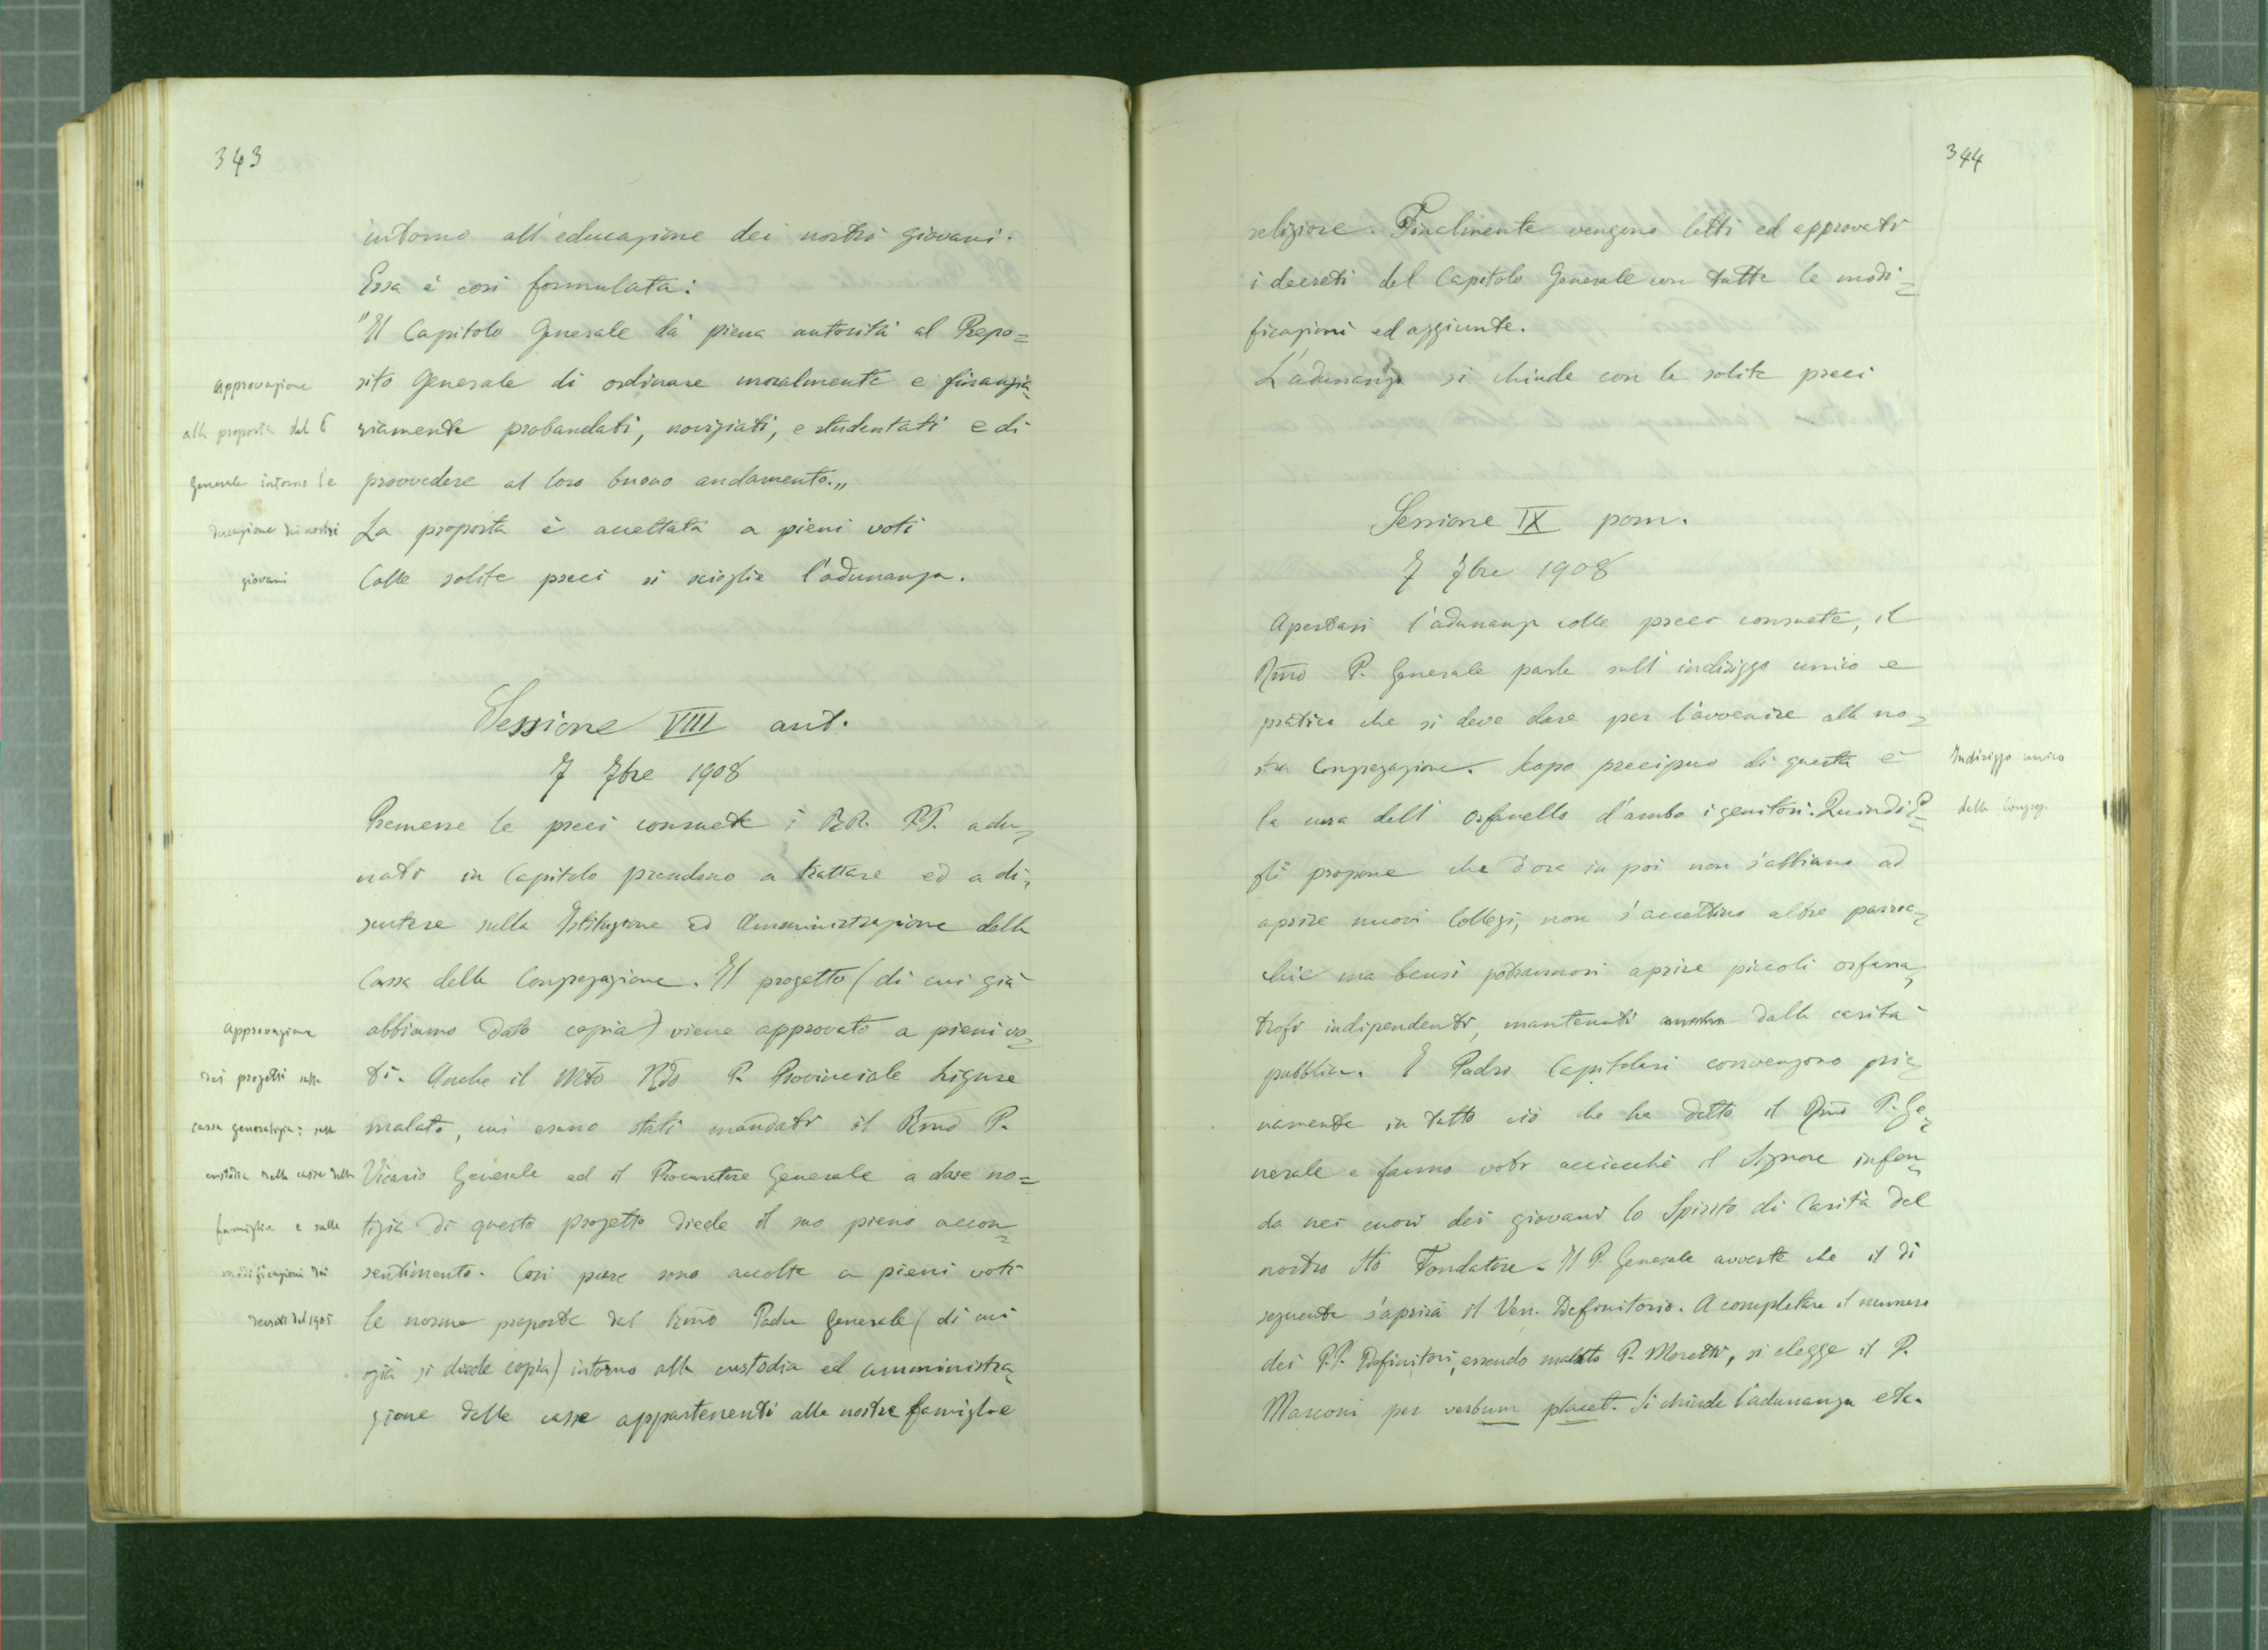 343
intorno all'educazione dei nostri giovani.
Essa è così formulata:
"Il Capitolo Generale dà piena autorità al Prepo=
sito Generale di ordinare moralmente e finanzia=
riamente probandati, noviziati, e studentati e di
provvedere al loro buono andamento.„
La proposta è accettata a pieni voti
Colle solite preci si scioglie l'adunanza.
approvazione
alla proposta del P
generale intorno l'e
ducazione dei nostri
giovani
Sessione VIII ant.
7 7bre 1908
Premesse le preci consuete i RR. PP. adu=
nati in Capitolo prendono a trattare ed a di=
scutere sulla Istituzione ed Amministrazione della
Cassa della Congregazione. Il progetto (di cui già
abbiamo dato copia) viene approvato a pieni vo=
ti. Anche il Mto Rdo P. Provinciale Ligure
malato, cui erano stati mandati il Rmo P.
Vicario Generale ed il Procuratore Generale a dare no=
tizia di questo progetto diede il suo pieno accon=
sentimento. Così pure sono accolte a pieni voti
le norme proposte dal Rmo Padre Generale (di cui
già si diede copia) intorno alla custodia ed amministra=
zione delle casse appartenenti alle nostre famiglie
approvazione
dei progetti sulla
cassa generalizia; sulla
custodia delle casse delle
famiglie e sulle
modificazioni dei
decreti del 1905
344
religiose. Finalmente vengono letti ed approvati
i decreti del Capitolo Generale con tutte le modi=
ficazioni ed aggiunte.
L'adunanza si chiude con le solite preci
Sessione IX pom.
7 7bre 1908
Apertasi l'adunanza colle preci consuete, il
Rmo P. Generale parla sull'indirizzo unico e
pratico che si deve dare per l'avvenire alla no=
stra Congregazione. Scopo precipuo di questa è
la cura dell'orfanello d'ambo i genitori. Quindi E=
gli propone che d'ora in poi non s'abbiano ad
aprire nuovi Collegi, non s'accettino altre parroc=
chie ma bensì potrannosi aprire piccoli orfana=
trofi indipendenti, mantenuti dalla carità
pubblica. I Padri Capitolari convengono pie=
namente in tutto ciò che ha detto il Rmo P. Ge=
nerale e fanno voti acciocchè il Signore infon=
da nei cuori dei giovani lo Spirito di Carità del
nostro Sto Fondatore. Il P. Generale avverte che il dì
seguente s'aprirà il Ven. Definitorio. A completare il numero
dei P.P. Definitori, essendo malato P. Moretti, si elegge il P.
Marconi per verbum placet. Si chiude l'adunanza etc.
Indirizzo unico
della Congreg.